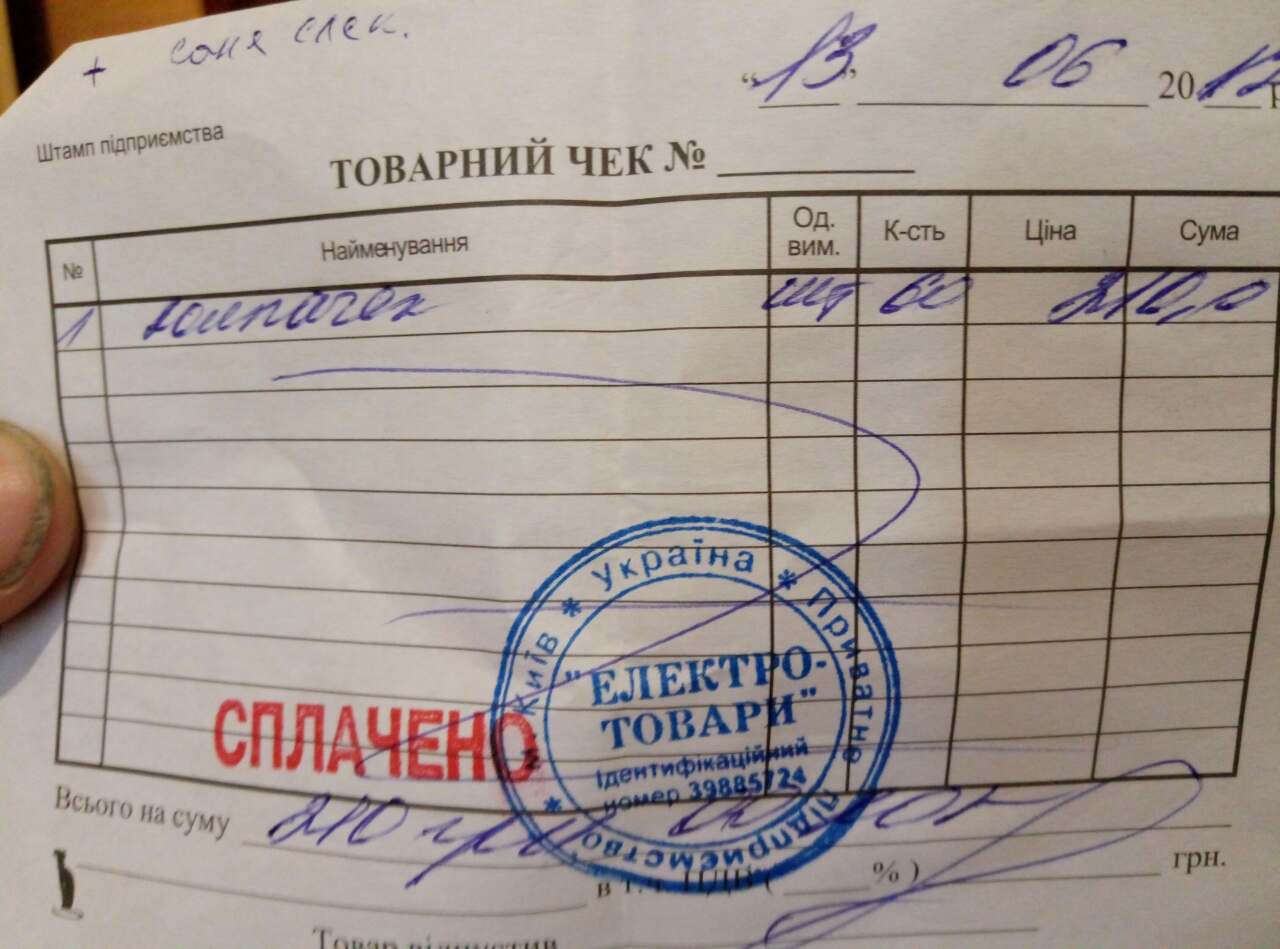 + соня елек.
"13" 06 2017 р
Штамп підприємства
ТОВАРНИЙ ЧЕК №
№ Найменування Од. вим. К-сть Ціна Сума
1 колпачек шт 60 210,0
СПЛАЧЕНО
Україна * Приватне підприємство * Київ *
"ЕЛЕКТРО-
ТОВАРИ"
Ідентифікаційний
номер 39885724
Всього на суму 210 грн 00 коп
в т.ч. ПДВ ( %) грн.
Товар відпустив